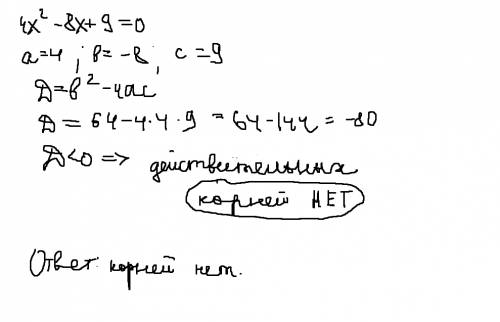 4x² - 8x + 9 = 0
a = 4 ; в = -8 ; c = 9
Д = в² - 4ac
Д = 64 - 4·4·9 = 64 - 144 = -80
Д < 0 => действительных
корней НЕТ
Ответ: корней нет.